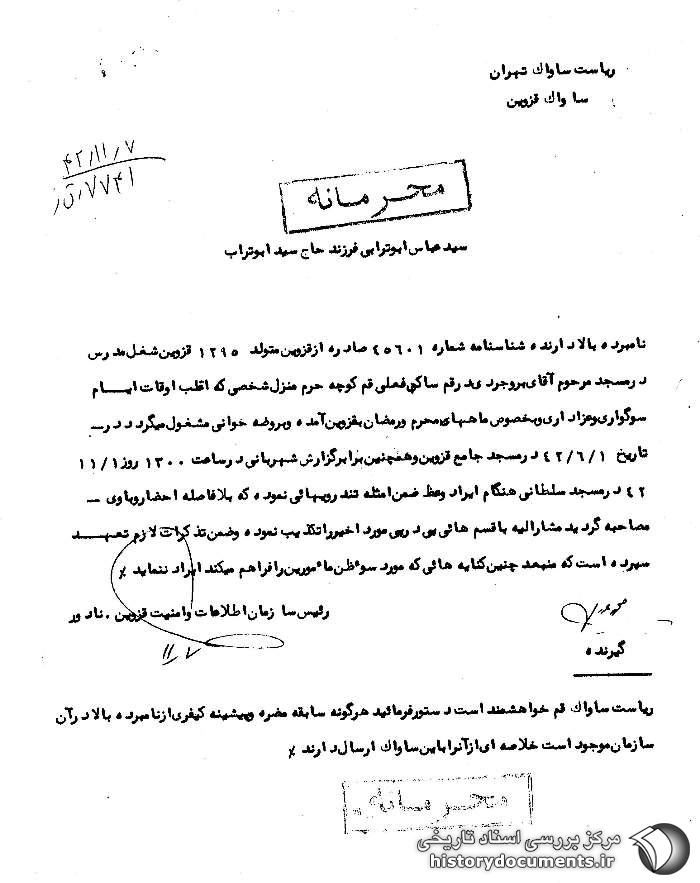 ریاست ساواك تهران
ساواك قزوین
۴۲/۱۱/۷
۷۷۴۱
محرمانه
سید عباس ابوترابی فرزند حاج سید ابوتراب
نامبرده بالا دارنده شناسنامه شماره ٤٥٦٠١ صادره از قزوین متولد ١٢٩٥ قزوین شغل مدرس
در مسجد مرحوم آقای بروجردی در قم ساکن فعلی قم کوچه حرم منزل شخصی که اغلب اوقات ایام
سوگواری و عزاداری و بخصوص ماههای محرم و رمضان بقزوین آمده و بروضه خوانی مشغول میگردد در ــ
تاریخ ٤٢/٦/١ در مسجد جامع قزوین و همچنین برابر گزارش شهربانی در ساعت ١٣٠٠ روز ١١/١
٤٢ در مسجد سلطانی هنگام ایراد وعظ ضمن امثله تند رویهائی نموده که بلافاصله احضار و با وی ــ
مصاحبه گردید مشارالیه با قسم هائی پی در پی مورد اخیر را تکذیب نموده و ضمن تذکرات لازم تعهد
سپرده است که منبعد چنین کنایه هائی که مورد سوءظن مأمورین را فراهم میکند ایراد ننماید ٪
رئیس سازمان اطلاعات و امنیت قزوین . نادور
۱۱/۷
گیرنده
ریاست ساواك قم خواهشمند است دستور فرمائید هرگونه سابقه مضره و پیشینه کیفری از نامبرده بالا در آن
سازمان موجود است خلاصه ای از آنرا باین ساواك ارسال دارند ٪
محرمانه
مرکز بررسی اسناد تاریخی
historydocuments.ir